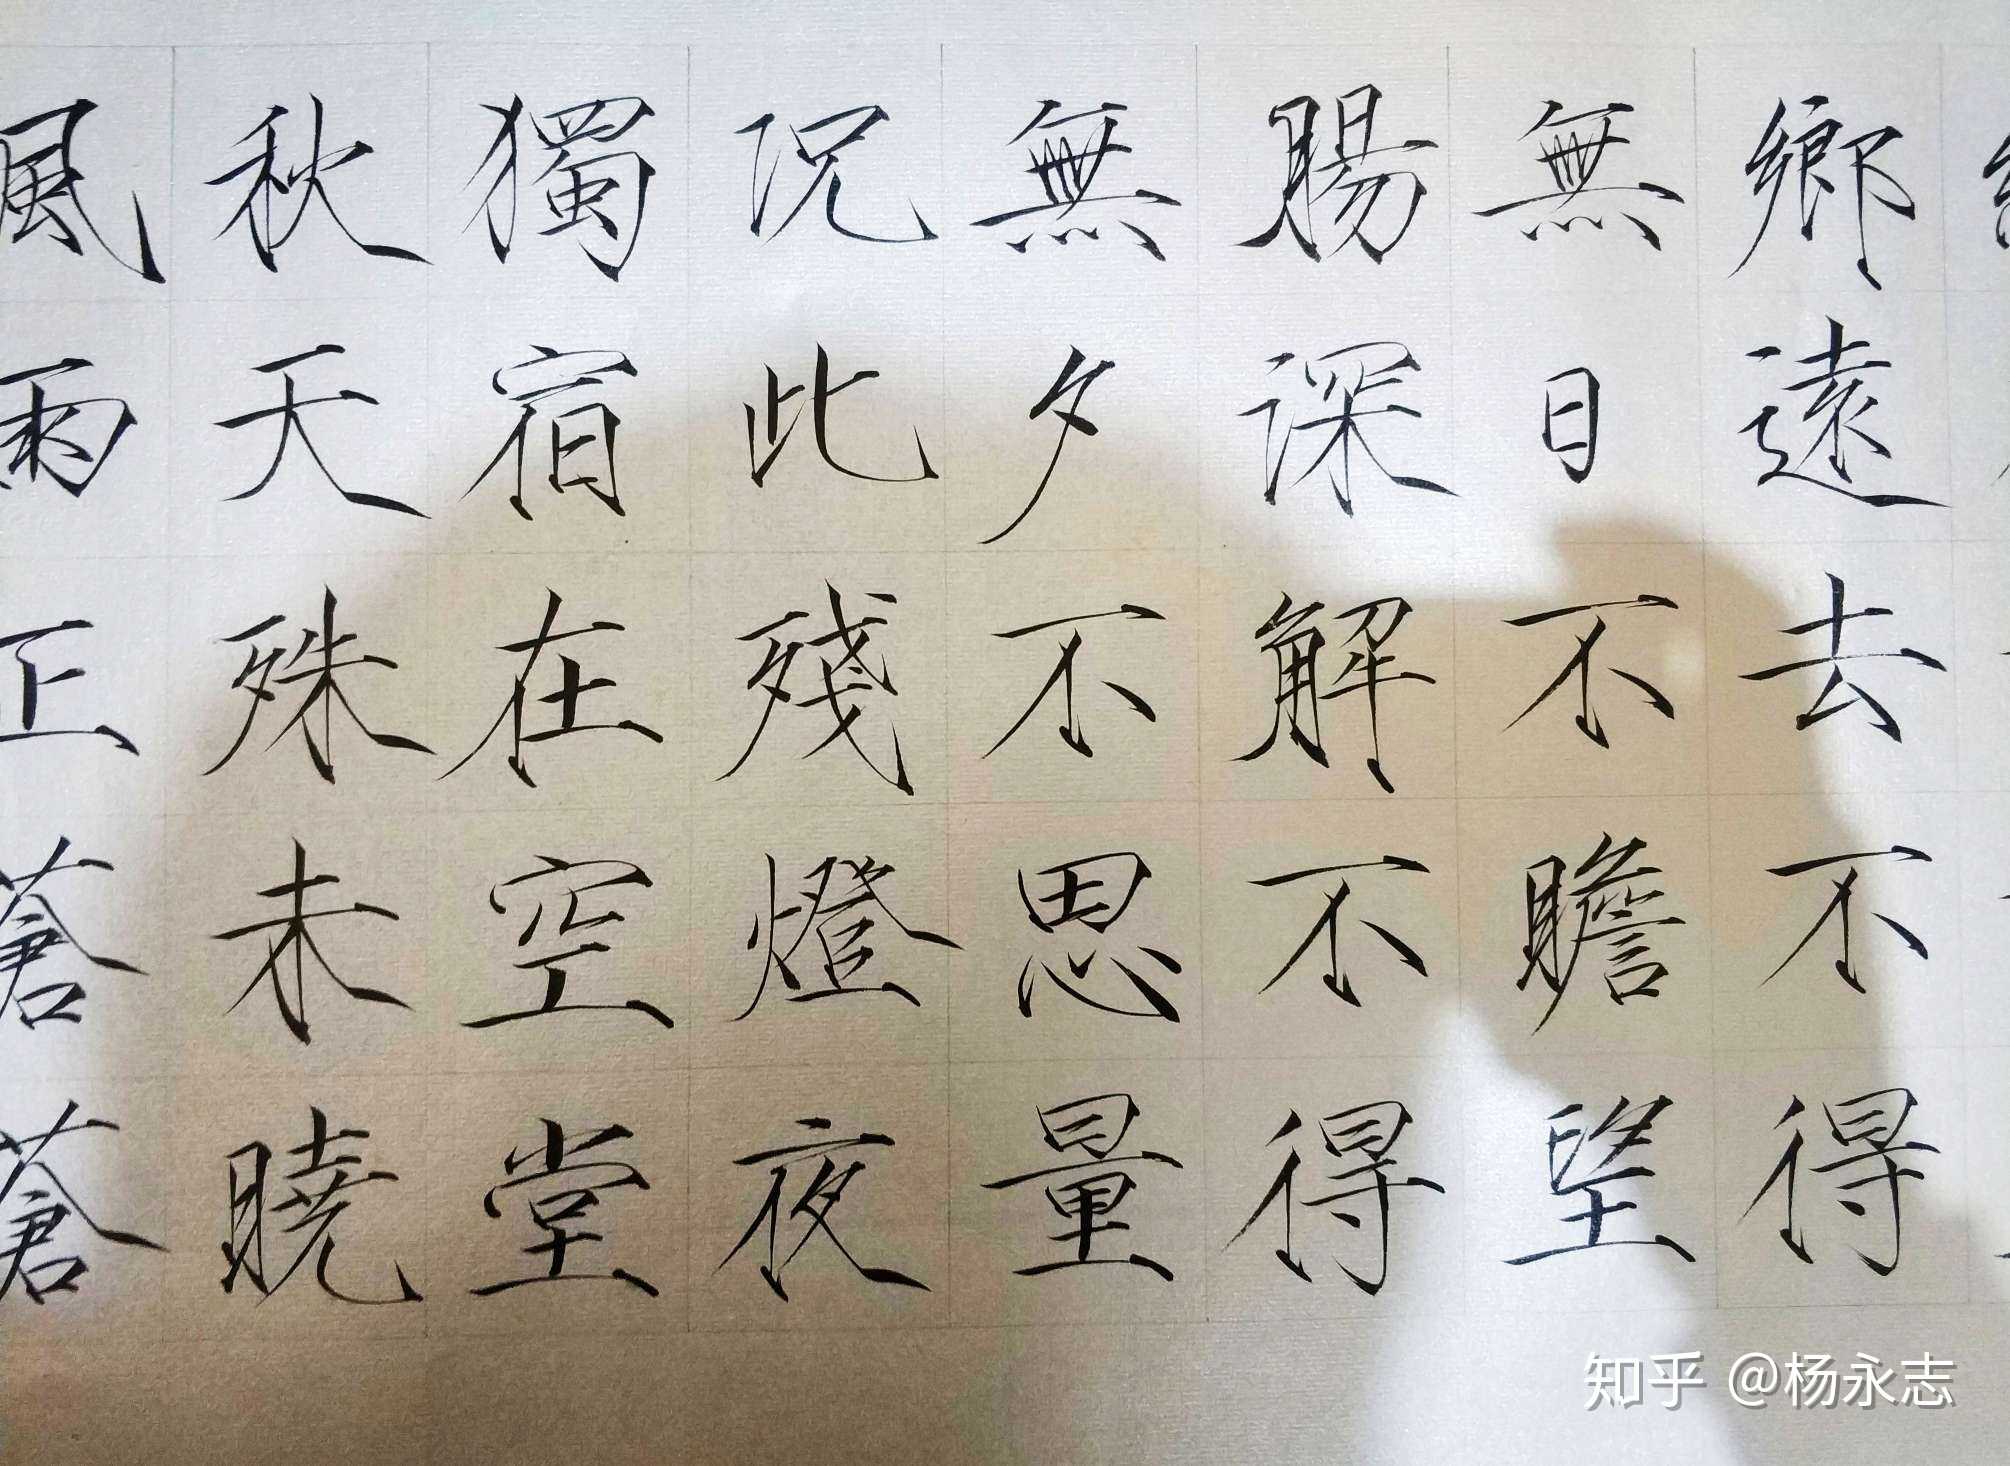 鄉遠去不得
無日不瞻望
腸深解不得
無夕不思量
況此殘燈夜
獨宿在空堂
秋天殊未曉
風雨正蒼蒼
知乎 @杨永志